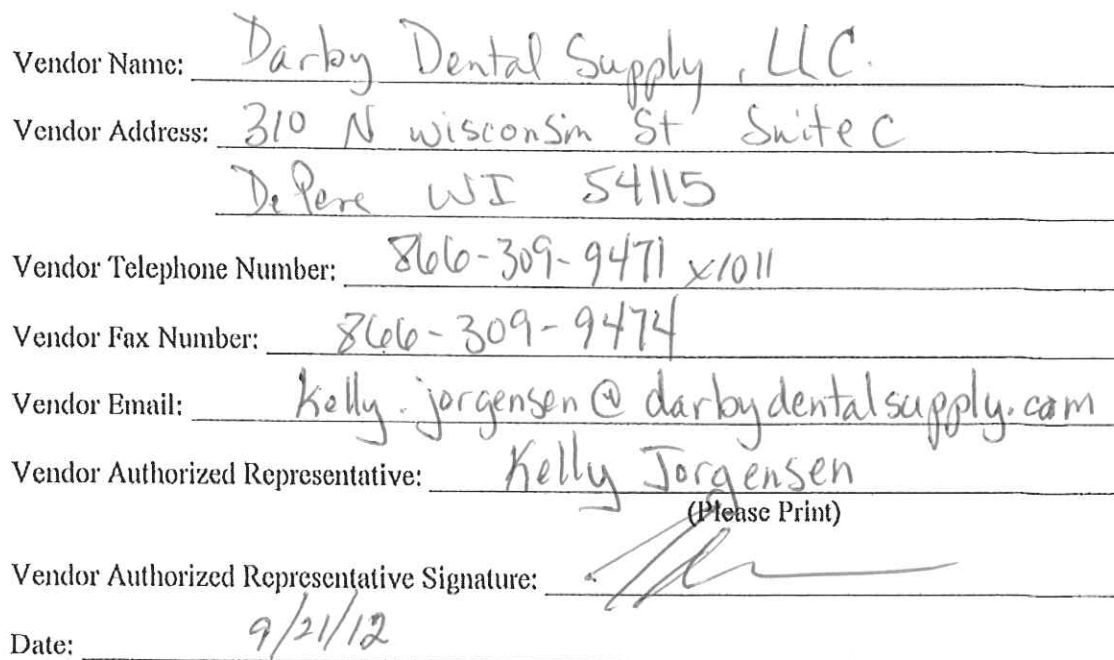 Vendor Name: Darby Dental Supply, LLC.
Vendor Address: 310 N wisconsin St Suite C
De Pere WI 54115
Vendor Telephone Number: 866-309-9471 x1011
Vendor Fax Number: 866-309-9474
Vendor Email: kelly.jorgensen@darbydentalsupply.com
Vendor Authorized Representative: Kelly Jorgensen
(Please Print)
Vendor Authorized Representative Signature:
Date: 9/21/12